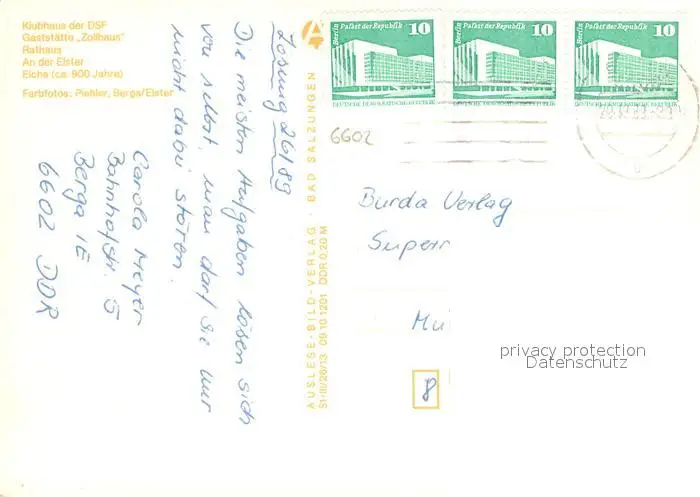 Klubhaus der DSF
Gaststätte „Zollhaus"
Rathaus
An der Elster
Eiche (ca. 900 Jahre)
Farbfotos: Piehler, Berga/Elster
Losung 26/89
Die meisten Aufgaben lösen sich
von selbst, man darf sie nur
nicht dabei stören.
Carola Meyer
Bahnhofstr. 5
Berga /E
6602 DDR
AUSLESE-BILD-VERLAG · BAD SALZUNGEN
S1-III/26/13 09 10 1201 DDR 0,20 M
Berlin Palast der Republik 10
DEUTSCHE DEMOKRATISCHE REPUBLIK
Berlin Palast der Republik 10
DEUTSCHE DEMOKRATISCHE REPUBLIK
Berlin Palast der Republik 10
DEUTSCHE DEMOKRATISCHE REPUBLIK
6602
Burda Verlag
Superr
Mu
8
privacy protection
Datenschutz